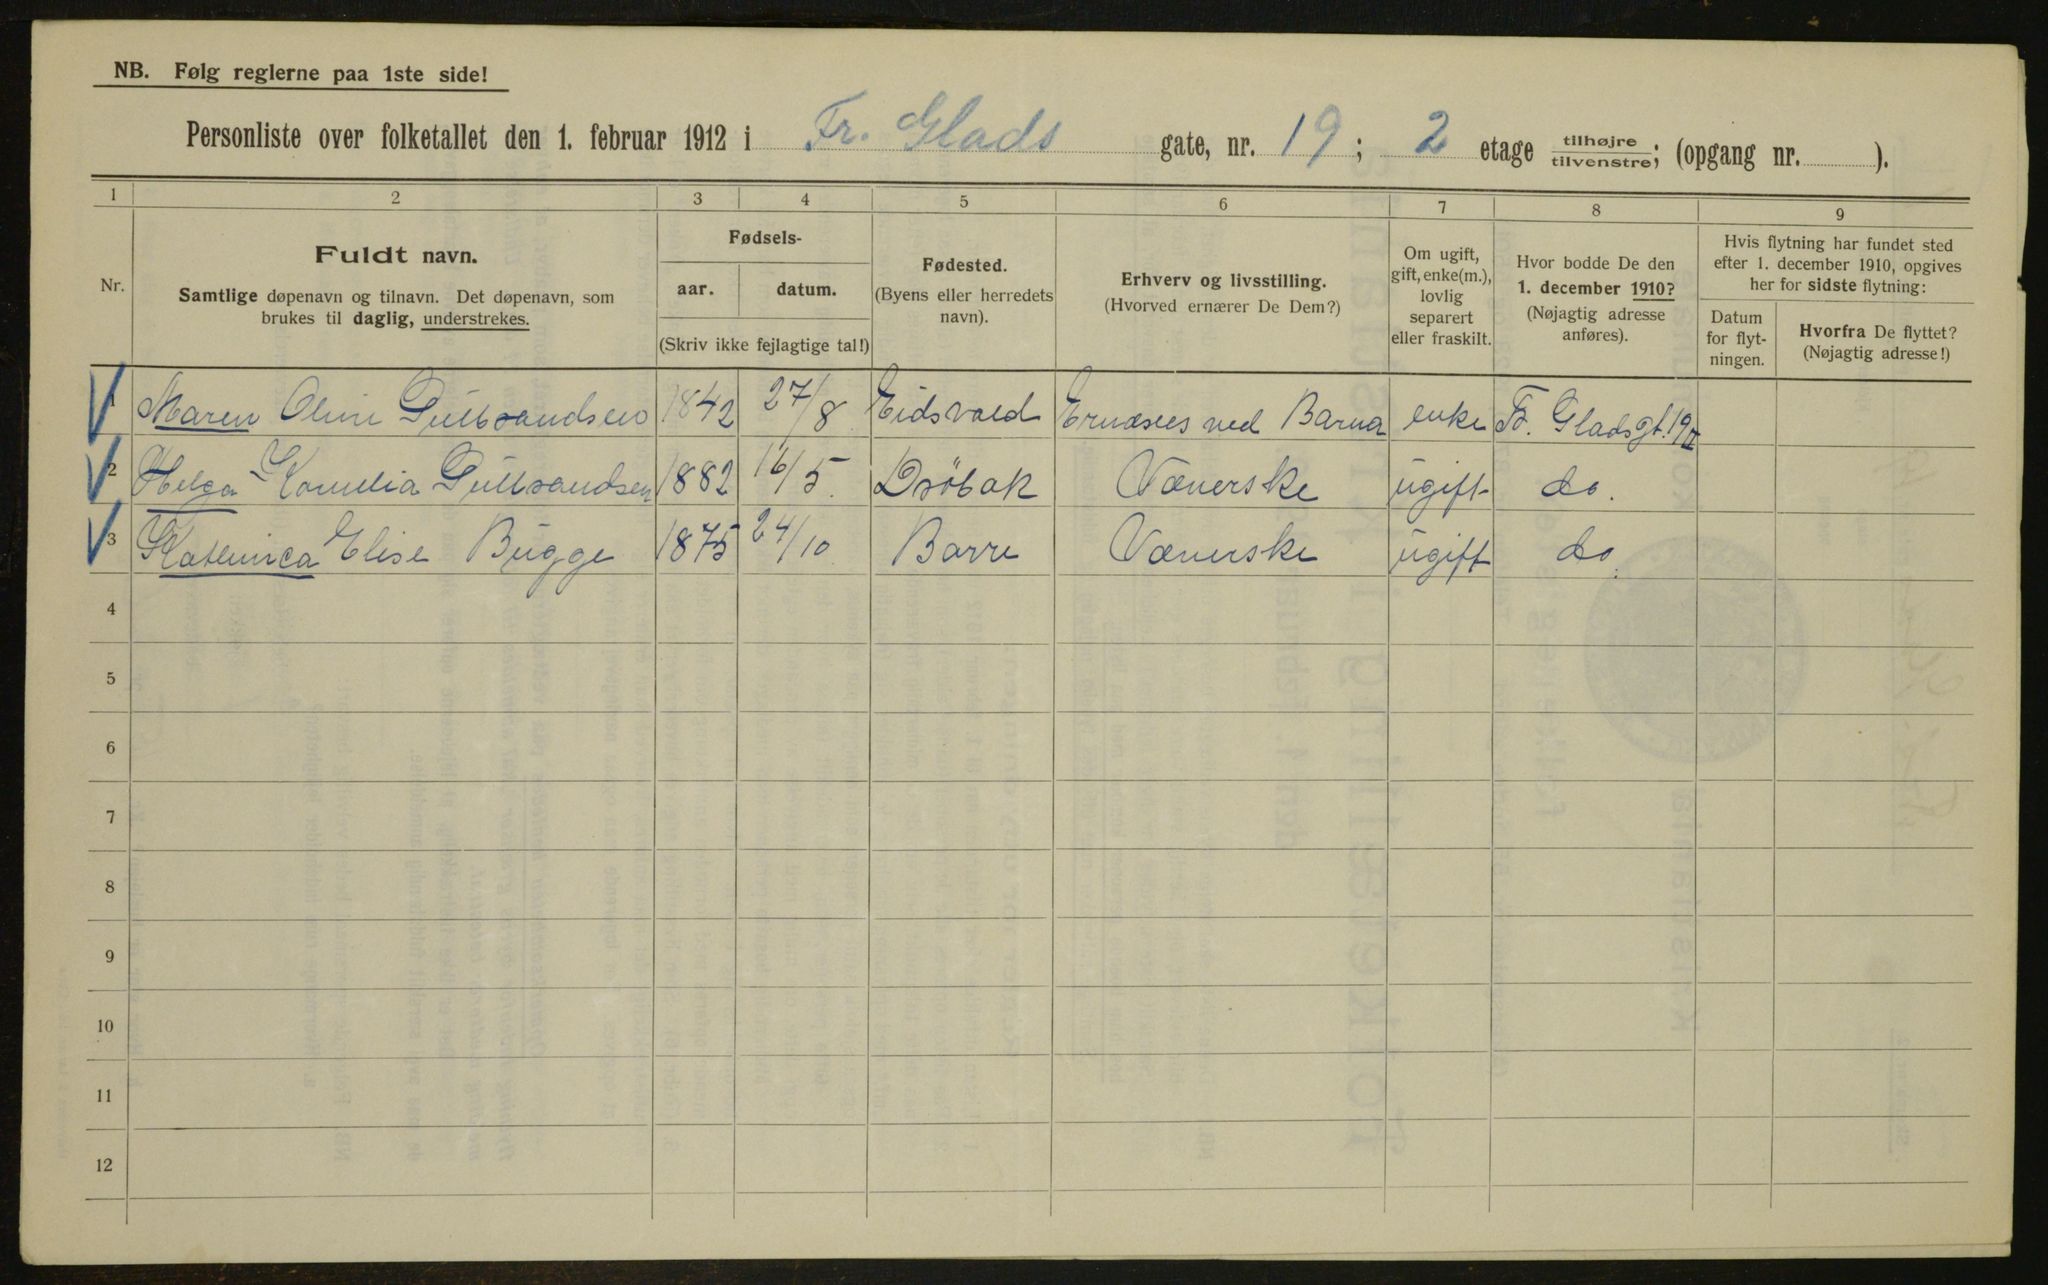 NB. Følg reglerne paa 1ste side!
Personliste over folketallet den 1. februar 1912 i Fr. Glads gate, nr. 19; 2 etage tilhøjre tilvenstre; (opgang nr. ).
1 2 3 4 5 6 7 8 9
Nr.
Fuldt navn.
Samtlige døpenavn og tilnavn. Det døpenavn, som
brukes til daglig, understrekes.
Fødsels-
aar. datum.
(Skriv ikke fejlagtige tal!)
Fødested.
(Byens eller herredets
navn).
Erhverv og livsstilling.
(Hvorved ernærer De Dem?)
Om ugift,
gift, enke(m.),
lovlig
separert
eller fraskilt.
Hvor bodde De den
1. december 1910?
(Nøjagtig adresse
anføres).
Hvis flytning har fundet sted
efter 1. december 1910, opgives
her for sidste flytning:
Datum
for flyt-
ningen.
Hvorfra De flyttet?
(Nøjagtig adresse!)
1 Maren Oline Gulbrandsen 1842 27/8 Eidsvold Ernæres ved Barna enke Fr. Gladsgt. 19 II
2 Helga Kornelia Gulbrandsen 1882 16/5 Drøbak Væverske ugift do.
3 Elise Bugge 1875 24/10 Borre Væverske ugift do.
4
5
6
7
8
9
10
11
12